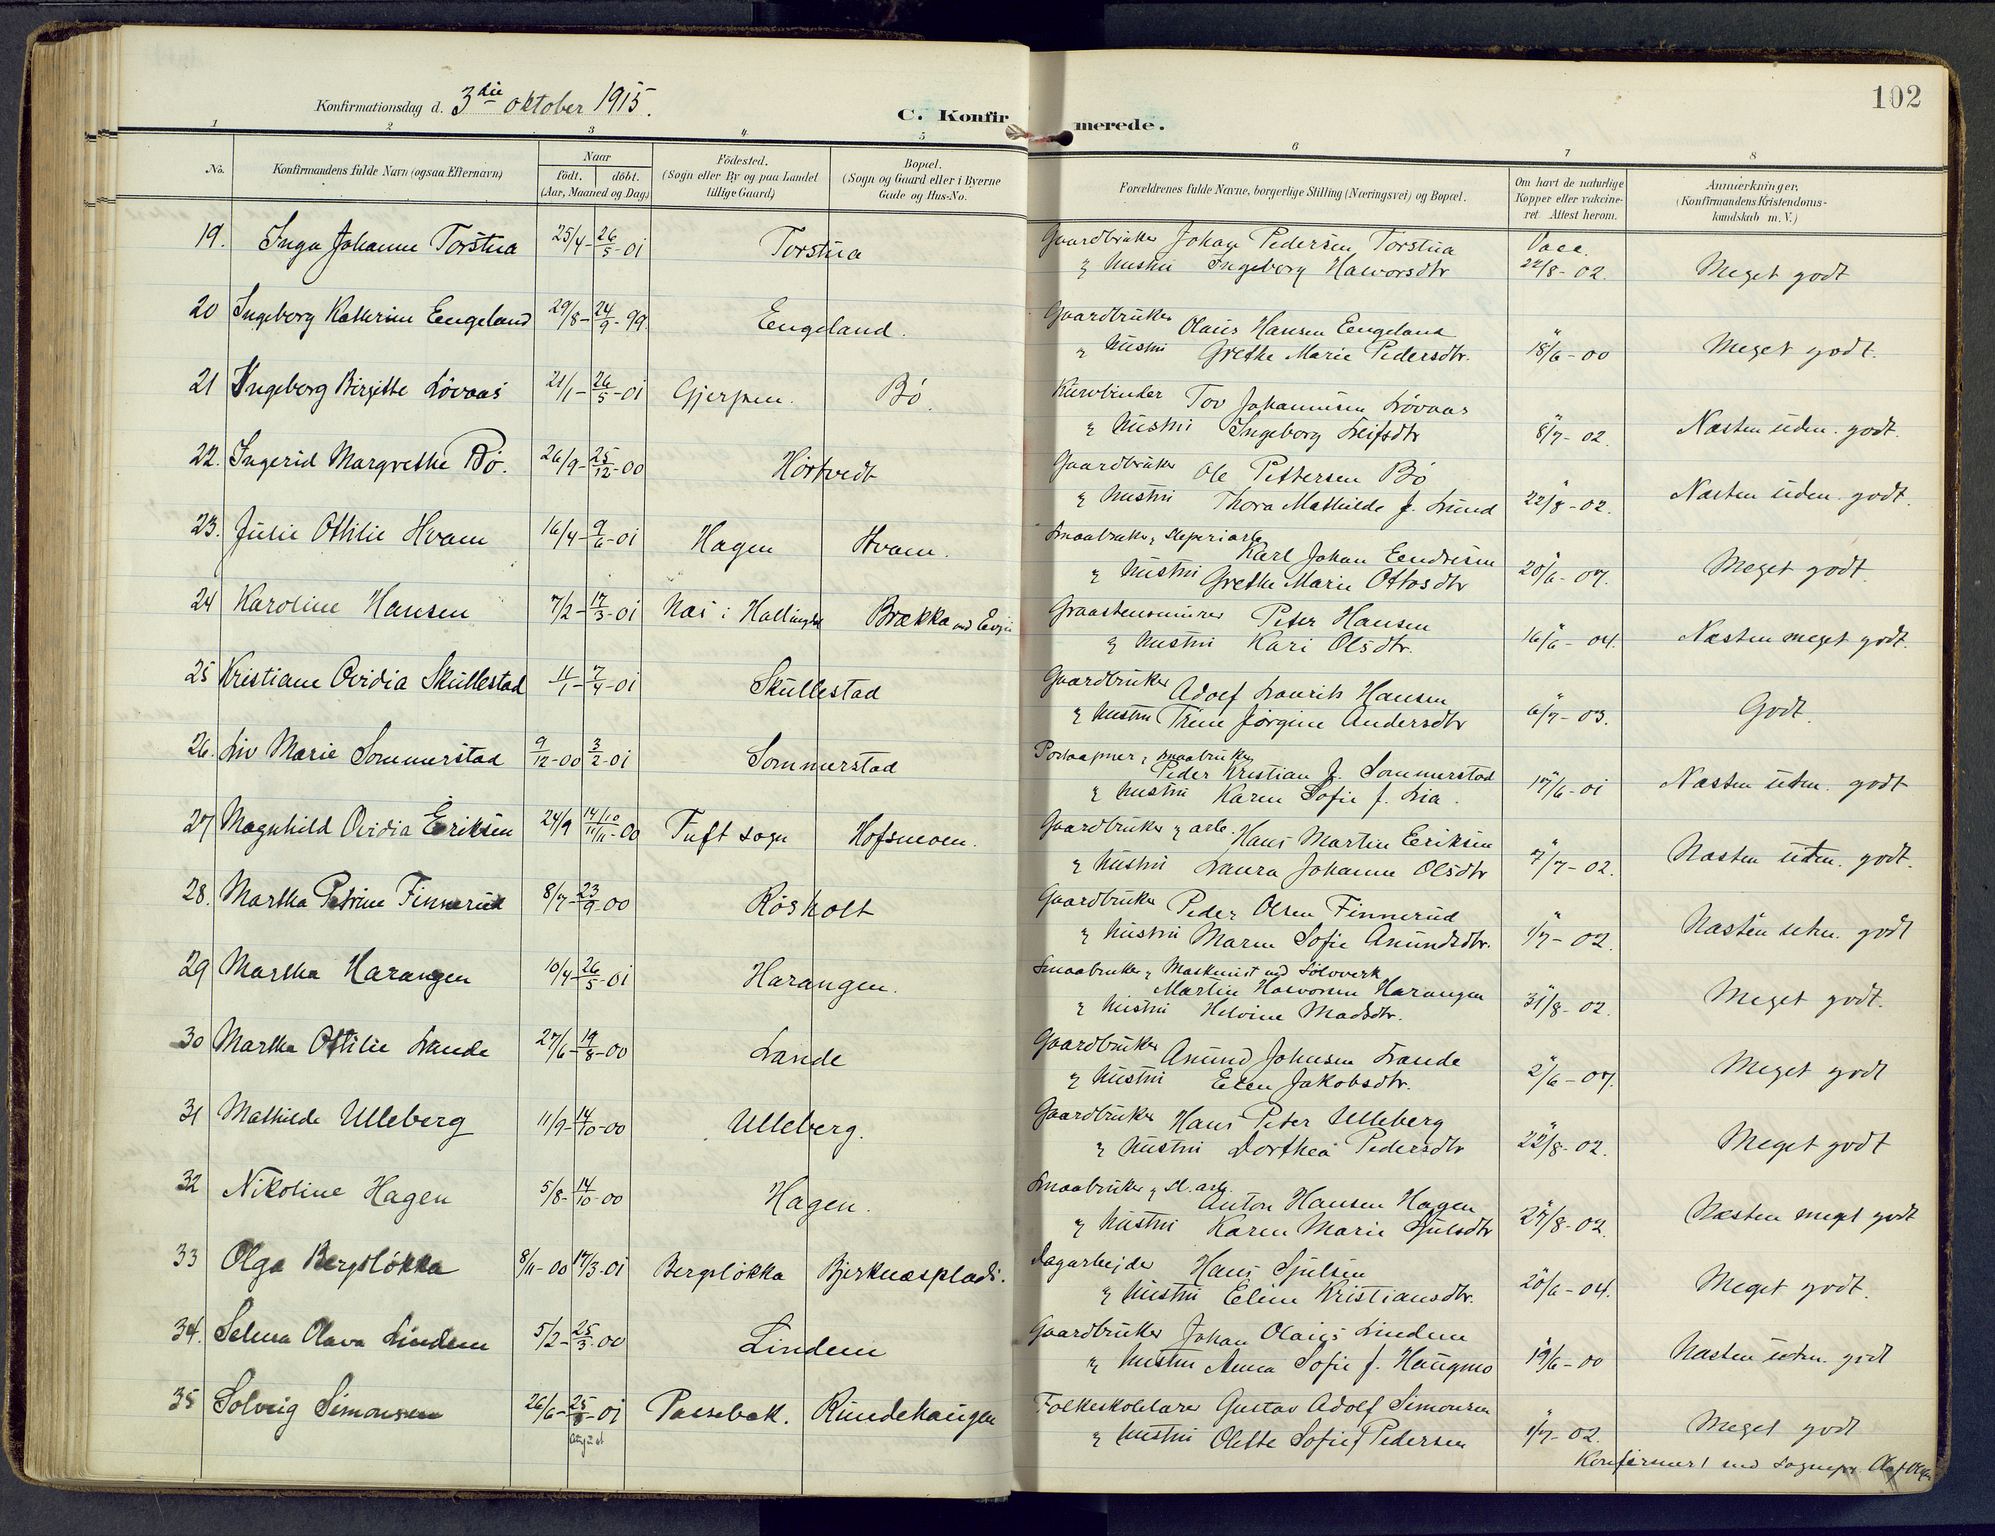 102
Konfirmationsdag d. 3die oktober 1915.
C. Konfirmerede.
1 2 3 4 5 6 7 8
No. Konfirmandens fulde Navn (ogsaa Efternavn) Naar født. døbt. (Aar, Maaned og Dag) Fødested. (Sogn eller By og paa Landet tillige Gaard) Bopæl. (Sogn og Gaard eller i Byerne Gade og Hus-No. Forældrenes fulde Navne, borgerlige Stilling (Næringsvei) og Bopæl. Om havt de naturlige Kopper eller vaccineret. Attest herom. Anmærkninger. (Konfirmandens Kristendomskundskab m. V.)
19. Inga Johanne Torstua 25/4- 26/5-01 Torstua Gaardbruker Johan Pedersen Torstua Vacc. Meget godt
& hustru Ingeborg Halvorsdtr 22/8-02.
20 Ingeborg Kathrine Engeland 29/8- 24/9-99. Engeland. Gaardbruker Olaus Hansen Engeland " Meget godt.
& hustru Grethe Marie Pedersdtr. 18/6-00
21 Ingeborg Birgitte Løvaas 21/1- 26/5-01 Gjerpen. Bø. Kurvbinder Tov Johannesen Løvaas " Næsten uden. godt.
& hustru Ingeborg Leifsdtr 8/7-02.
22. Ingerid Margrethe Bø. 26/9- 25/12-00 Hørtvedt Gaardbruker Ole Pettersen Bø " Næsten uden. godt.
& hustru Thora Mathilde f. Lund 22/8-02.
23. Julie Othilie Hvam 16/4- 9/6-01 Hagen Hvam. Smaabruker & sliperiarb. Karl Johan Eendresen " Meget godt.
& hustru Grethe Marie Ottosdtr 20/6-07.
24 Karoline Hansen 7/2- 17/3-01 Næs i Hallingdal Brækka Graastensmurer Peter Hansen " Næsten meget godt.
& hustru Kari Olsdtr. 16/6-04.
25 Kristiane Ovidia Skullestad 11/1- 7/4-01 Skullestad Gaardbruker Adolf Laurits Hansen " Godt.
& hustru Trine Jørgine Andersdtr 6/7-03.
26. Liv Marie Sommerstad 9/12-00 3/2-01 Sommerstad Postaapner & smaabruker Peder Kristian J. Sommerstad " Næsten utm. godt
& hustru Karen Sofie f. Lia. 17/6-01
27 Magnhild Ovidia Eriksen 24/9 14/10 11/11-00 Tuft sogn Hofsmoen. Gaardbruker & arb. Hans Martin Eeriksen " Næsten utm. godt.
& hustru Laura Johanne Olsdtr 7/7-02.
28. Martha Petrine Finnerud 8/7- 23/9-00 Røsholt Gaardbruker Peder Olsen Finnerud " Næsten utm. godt
& hustru Maren Sofie Anundsdtr. 1/7-02.
29 Martha Harangen 10/4- 26/5-01 Harangen. Smaabruker & Maskinist ved Sølvverk Martin Halvorsen Harangen " Meget godt.
& hustru Helvine Madsdtr. 31/8-02.
30 Martha Othilie Lande 27/6- 19/8-00 Lande Gaardbruker Anund Johnsen Lande " Meget godt
& hustru Elen Jakobsdtr. 2/6-07.
31 Mathilde Ulleberg 11/9- 14/10-00 Ulleberg. Gaardbruker Hans Peter Ulleberg " Meget godt
& hustru Dorthea Pedersdtr 22/8-02.
32 Nikoline Hagen 5/8- 14/10-00 Hagen. Smaabruker & sl. arb. Anton Hansen Hagen " Næsten meget godt
& hustru Karen Marie Sjulsdtr 27/8-02.
33 Olga Bergsløkka 8/11-00 17/3-01 Bergsløkka Bjerknæsplads. Dagarbejder Hans Sjulsen " Meget godt.
& hustru Eline Kristiansdtr. 20/6-04.
34. Selma Olava Lindem 5/2- 25/3-00 Lindem Gaardbruker Johan Olaus Lindem " Næsten utm. godt
& hustru Anna Sofie f. Haugmo 19/6-00
35 Solveig Simonsen 26/6- 25/8-01 Passebæk. Rundehaugen Folkeskolelærer Gustav Adolf Simonsen " Meget godt
august & hustru Olette Sofie f Pedersen 1/7-02.
Konfirmert ved sognepr.